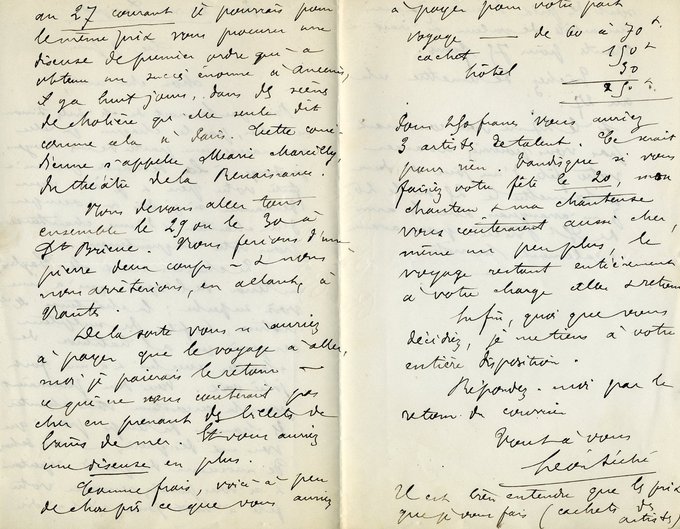 au 27 courant je pourrais pour
le même prix vous procurer une
diseuse de premier ordre qui a
obtenu un succès énorme à Ancenis,
il y a huit jours, dans des scènes
qu'elle seule dit
comme cela à Paris. Cette comé-
dienne s'appelle Marie Marcilly,
du théâtre de la Renaissance.
Nous devons aller tous
ensemble le 29 ou le 30 à
St Brieuc. Nous ferions d'une
pierre deux coups - & nous
nous arrêterions, en allant, à
Nantes.
De la sorte vous n'auriez
à payer que le voyage à aller,
moi je paierais le retour -
ce qui ne nous coûterait pas
cher en prenant des billets de
bains de mer. Et vous auriez
une diseuse en plus.
Comme frais, voici à peu
de chose près ce que vous auriez
à payer pour votre part
voyage — de 60 à 70 f.
cachet 150 f
hôtel 30
250 f.
Pour 250 francs vous auriez
3 artistes de talent. Ce serait
pour rien. Tandis que si vous
faisiez votre fête le 20, mon
chanteur & ma chanteuse
vous coûteraient aussi cher,
même un peu plus, le
voyage restant entièrement
à votre charge aller & retour
Enfin, quoi que vous
décidiez, je me tiens à votre
entière disposition.
Répondez-moi par le
retour du courrier
Tout à vous
Léon Séché
Il est bien entendu que les prix
que je vous fais (cachets des
artistes)